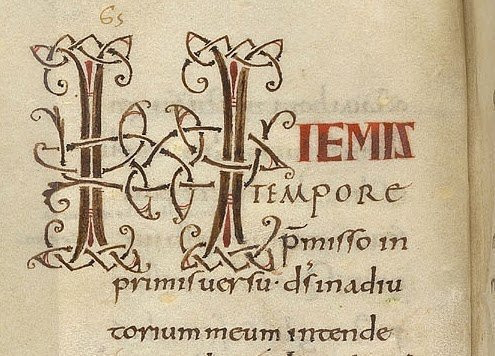 65
HIEMIS
TEMPORE
p̄misso in
primis uersu· d̄s in adiu
torium meum intende